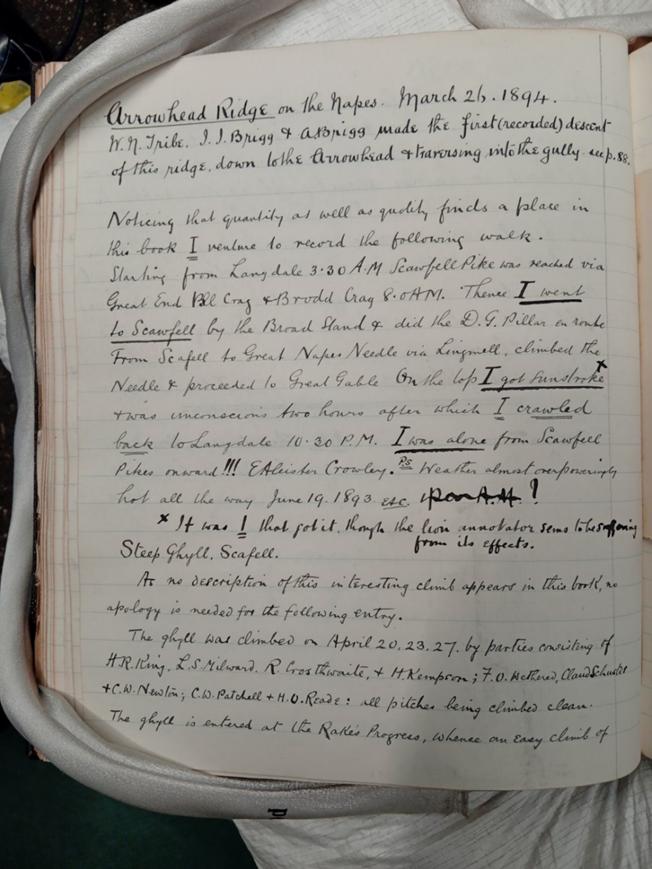 Arrowhead Ridge on the Napes. March 26. 1894.
W.N. Tribe. J.J. Brigg & A Brigg made the first (recorded) descent
of this ridge, down to the Arrowhead & traversing into the gully. see p. 88.
Noticing that quantity as well as quality finds a place in
this book I venture to record the following walk.
Starting from Langdale 3.30 A.M Scawfell Pike was reached via
Great End Ill Crag & Broad Crag 8.0 AM. Thence I went
to Scawfell by the Broad Stand & did the D.G. Pillar en route
From Scafell to Great Napes Needle via Lingmell, climbed the
Needle & proceeded to Great Gable On the top I got sunstroke x
& was unconscious two hours after which I crawled
back to Langdale 10.30 P.M. I was alone from Scawfell
Pikes onward!!! EAleister Crowley. P.S Weather almost overpoweringly
hot all the way June 19. 1893. etc. !
x It was I that got it, though the lion annotator sems to be suffering
from its effects.
Steep Ghyll. Scafell.
As no description of this interesting climb appears in this book, no
apology is needed for the following entry.
The ghyll was climbed on April 20, 23, 27, by parties consisting of
H.R. King, L.S. Milward, R. Crosthwaite, & H. Kempson; F.O. Wethered, Claud Schuster
& C.W. Newton; C.W. Patchell & H.V. Reade: all pitches being climbed clean.
The ghyll is entered at the Rake's Progress, whence an easy climb of